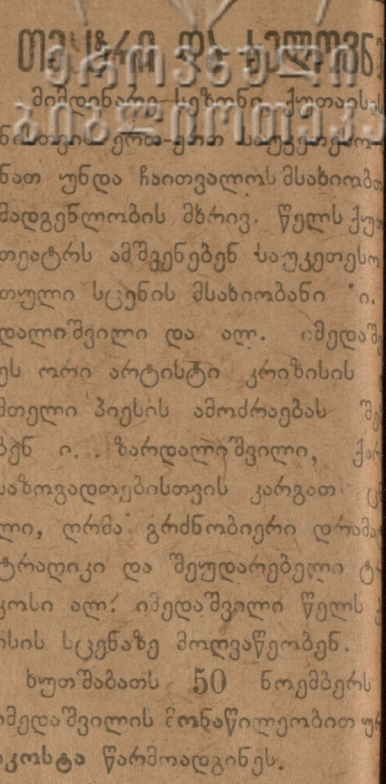 თეატრი და ხელოვნ
ეროვნული
ბიბლიოთეკა
მიმდინარე სეზონი ქუთაისის
ნათ უნდა ჩაითვალოს მსახიობთ
მადგენლობის მხრივ. წელს ქუ
თეატრს ამშვენებენ საუკეთესო
თული სცენის მსახიობანი ი.
დალიშვილი და ალ. იმედაშ
ეს ორი არტისტი კრიზისის
მთელი პიესის ამოძრავებას შე
ბენ ი. ზარდალიშვილი, ქარ
საზოგადოებისთვის კარგათ ც
ლი, ღრმა გრძნობიერი დრამა
ტრაღიკი და შეუდარებელი ტ
კოსი ალ. იმედაშვილი წელს
ისის სცენაზე მოღვაწეობენ.
ხუთშაბათს 50 ნოემბერს
იმედაშვილის მონაწილეობით ურ
აკოსტა წარმოადგინეს.